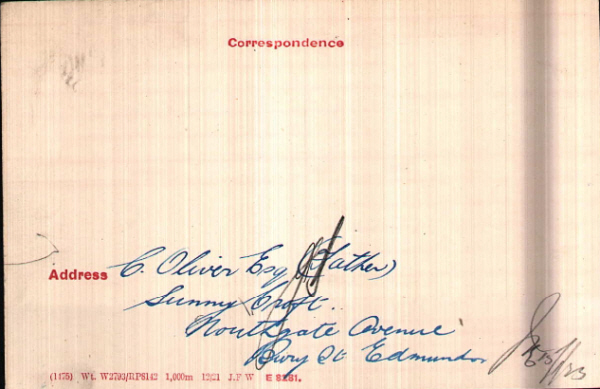 Correspondence
Address C. Oliver Esq (Father)
Sunny Croft.
Northgate Avenue
Bury St Edmunds
(1475) Wt. W2793/RP8142 1,000m 12/21 J.F W E 8281.